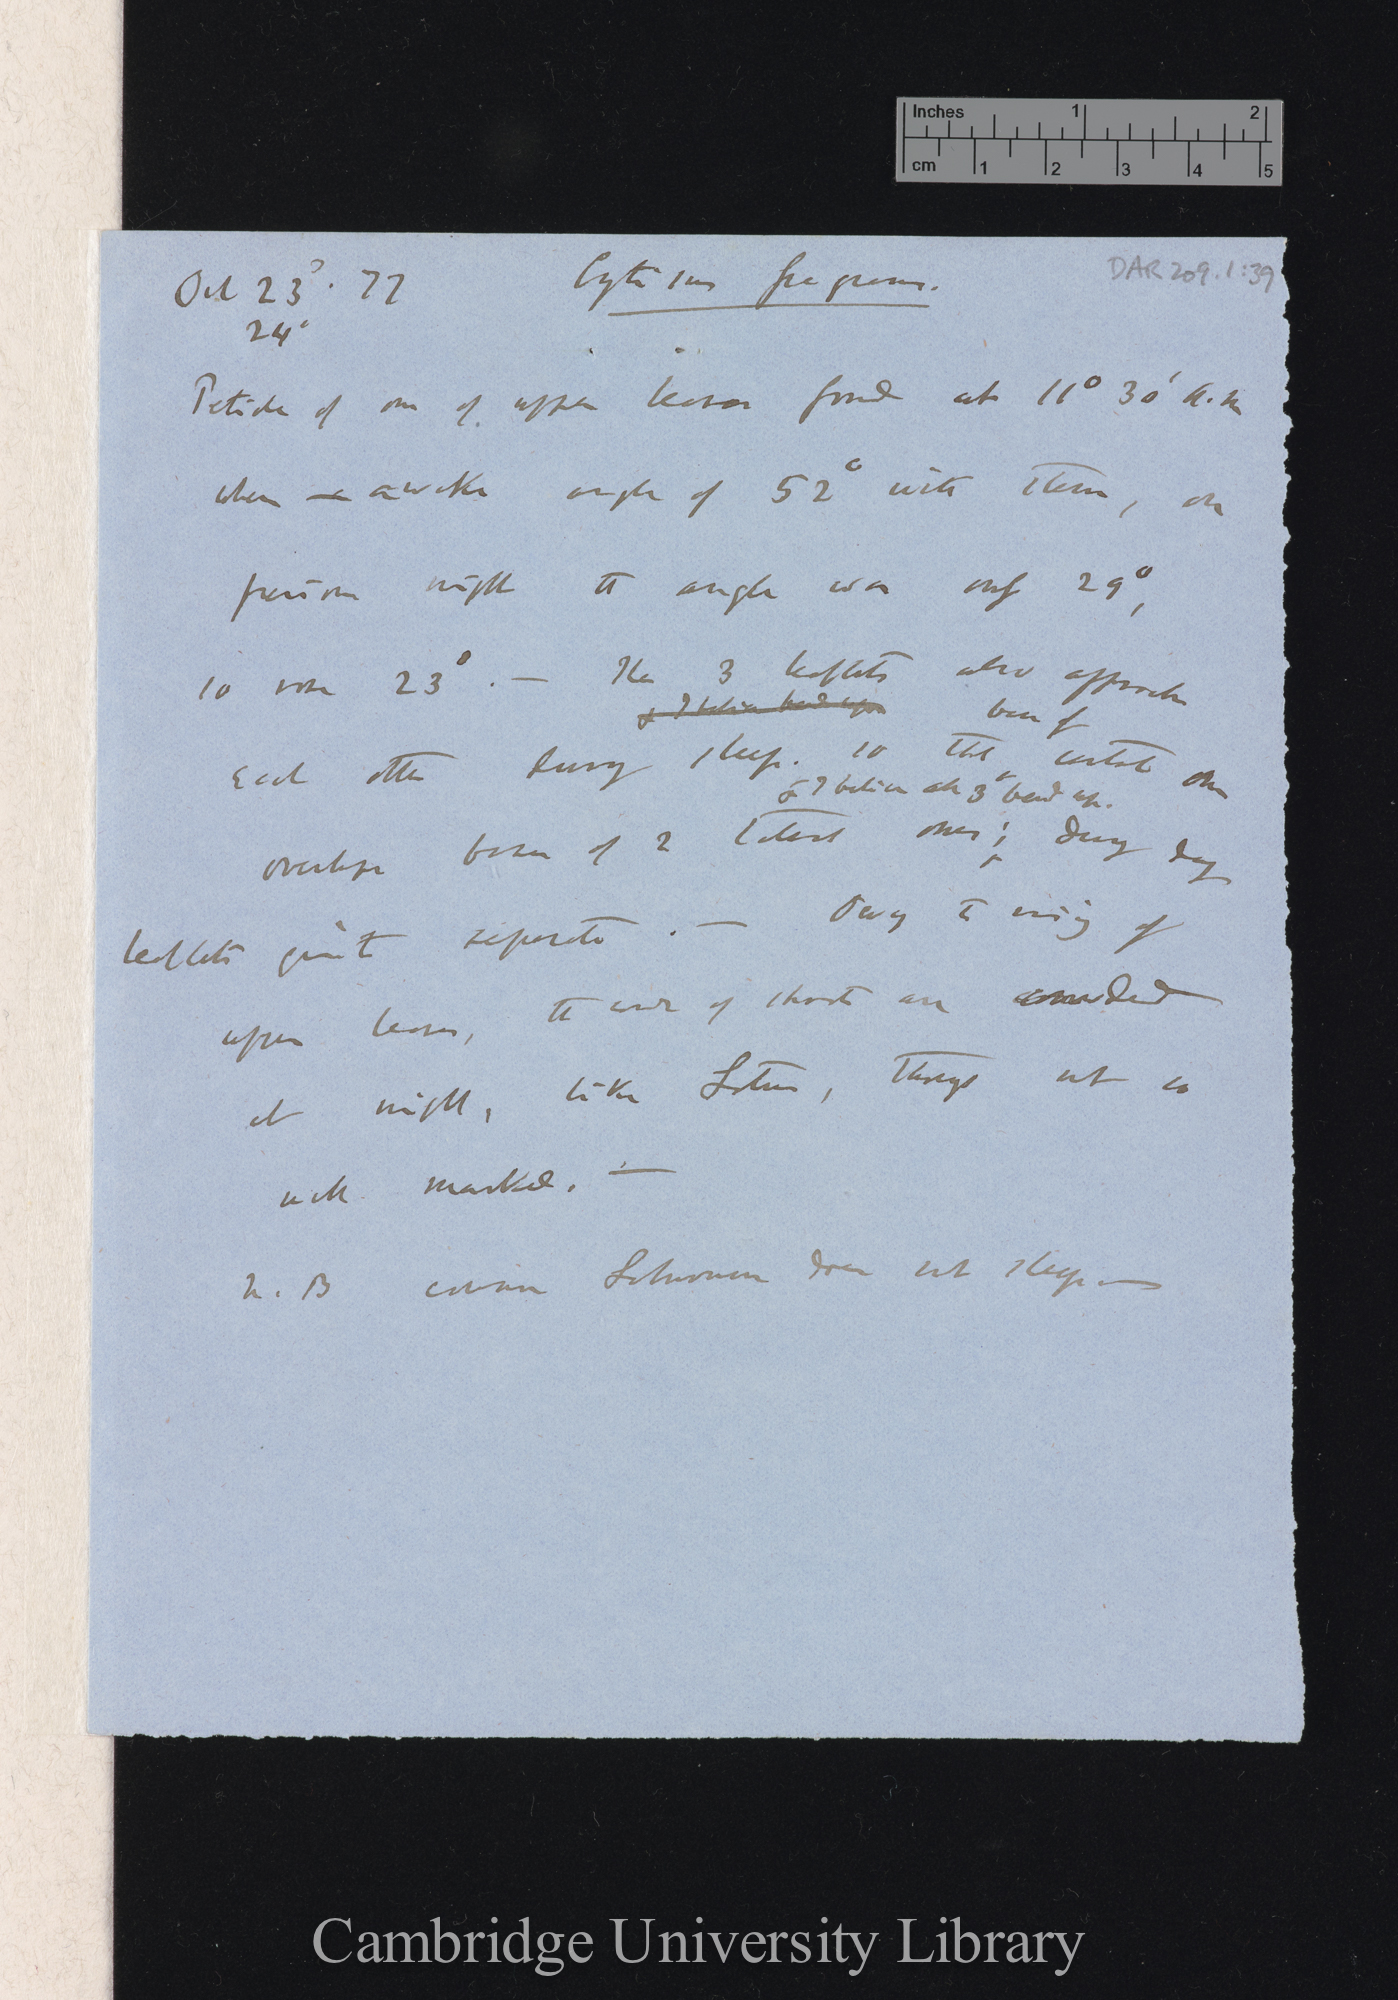 Inches 1 2
cm 1 2 3 4 5
DAR 209.1:39
Oct 23ᵈ. 77 Cytisus fragrans.
24°
Petiole of one of upper leaves found at 11° 30' a.m
when awake angle of 52° with stem, on
previous night the angle was only 29°,
so rose 23°. — The 3 leaflets also approach
& I believe bend up
base of
each other during sleep. so that central one
& I believe all 3 bend up.
overlaps bases of 2 lateral ones; During day
leaflets quite separate. — Owing to rising of
upper leaves, the ends of shoots are
at night, like Lotus, though not so
well marked. —
N. B common Laburnum does not sleep —
Cambridge University Library